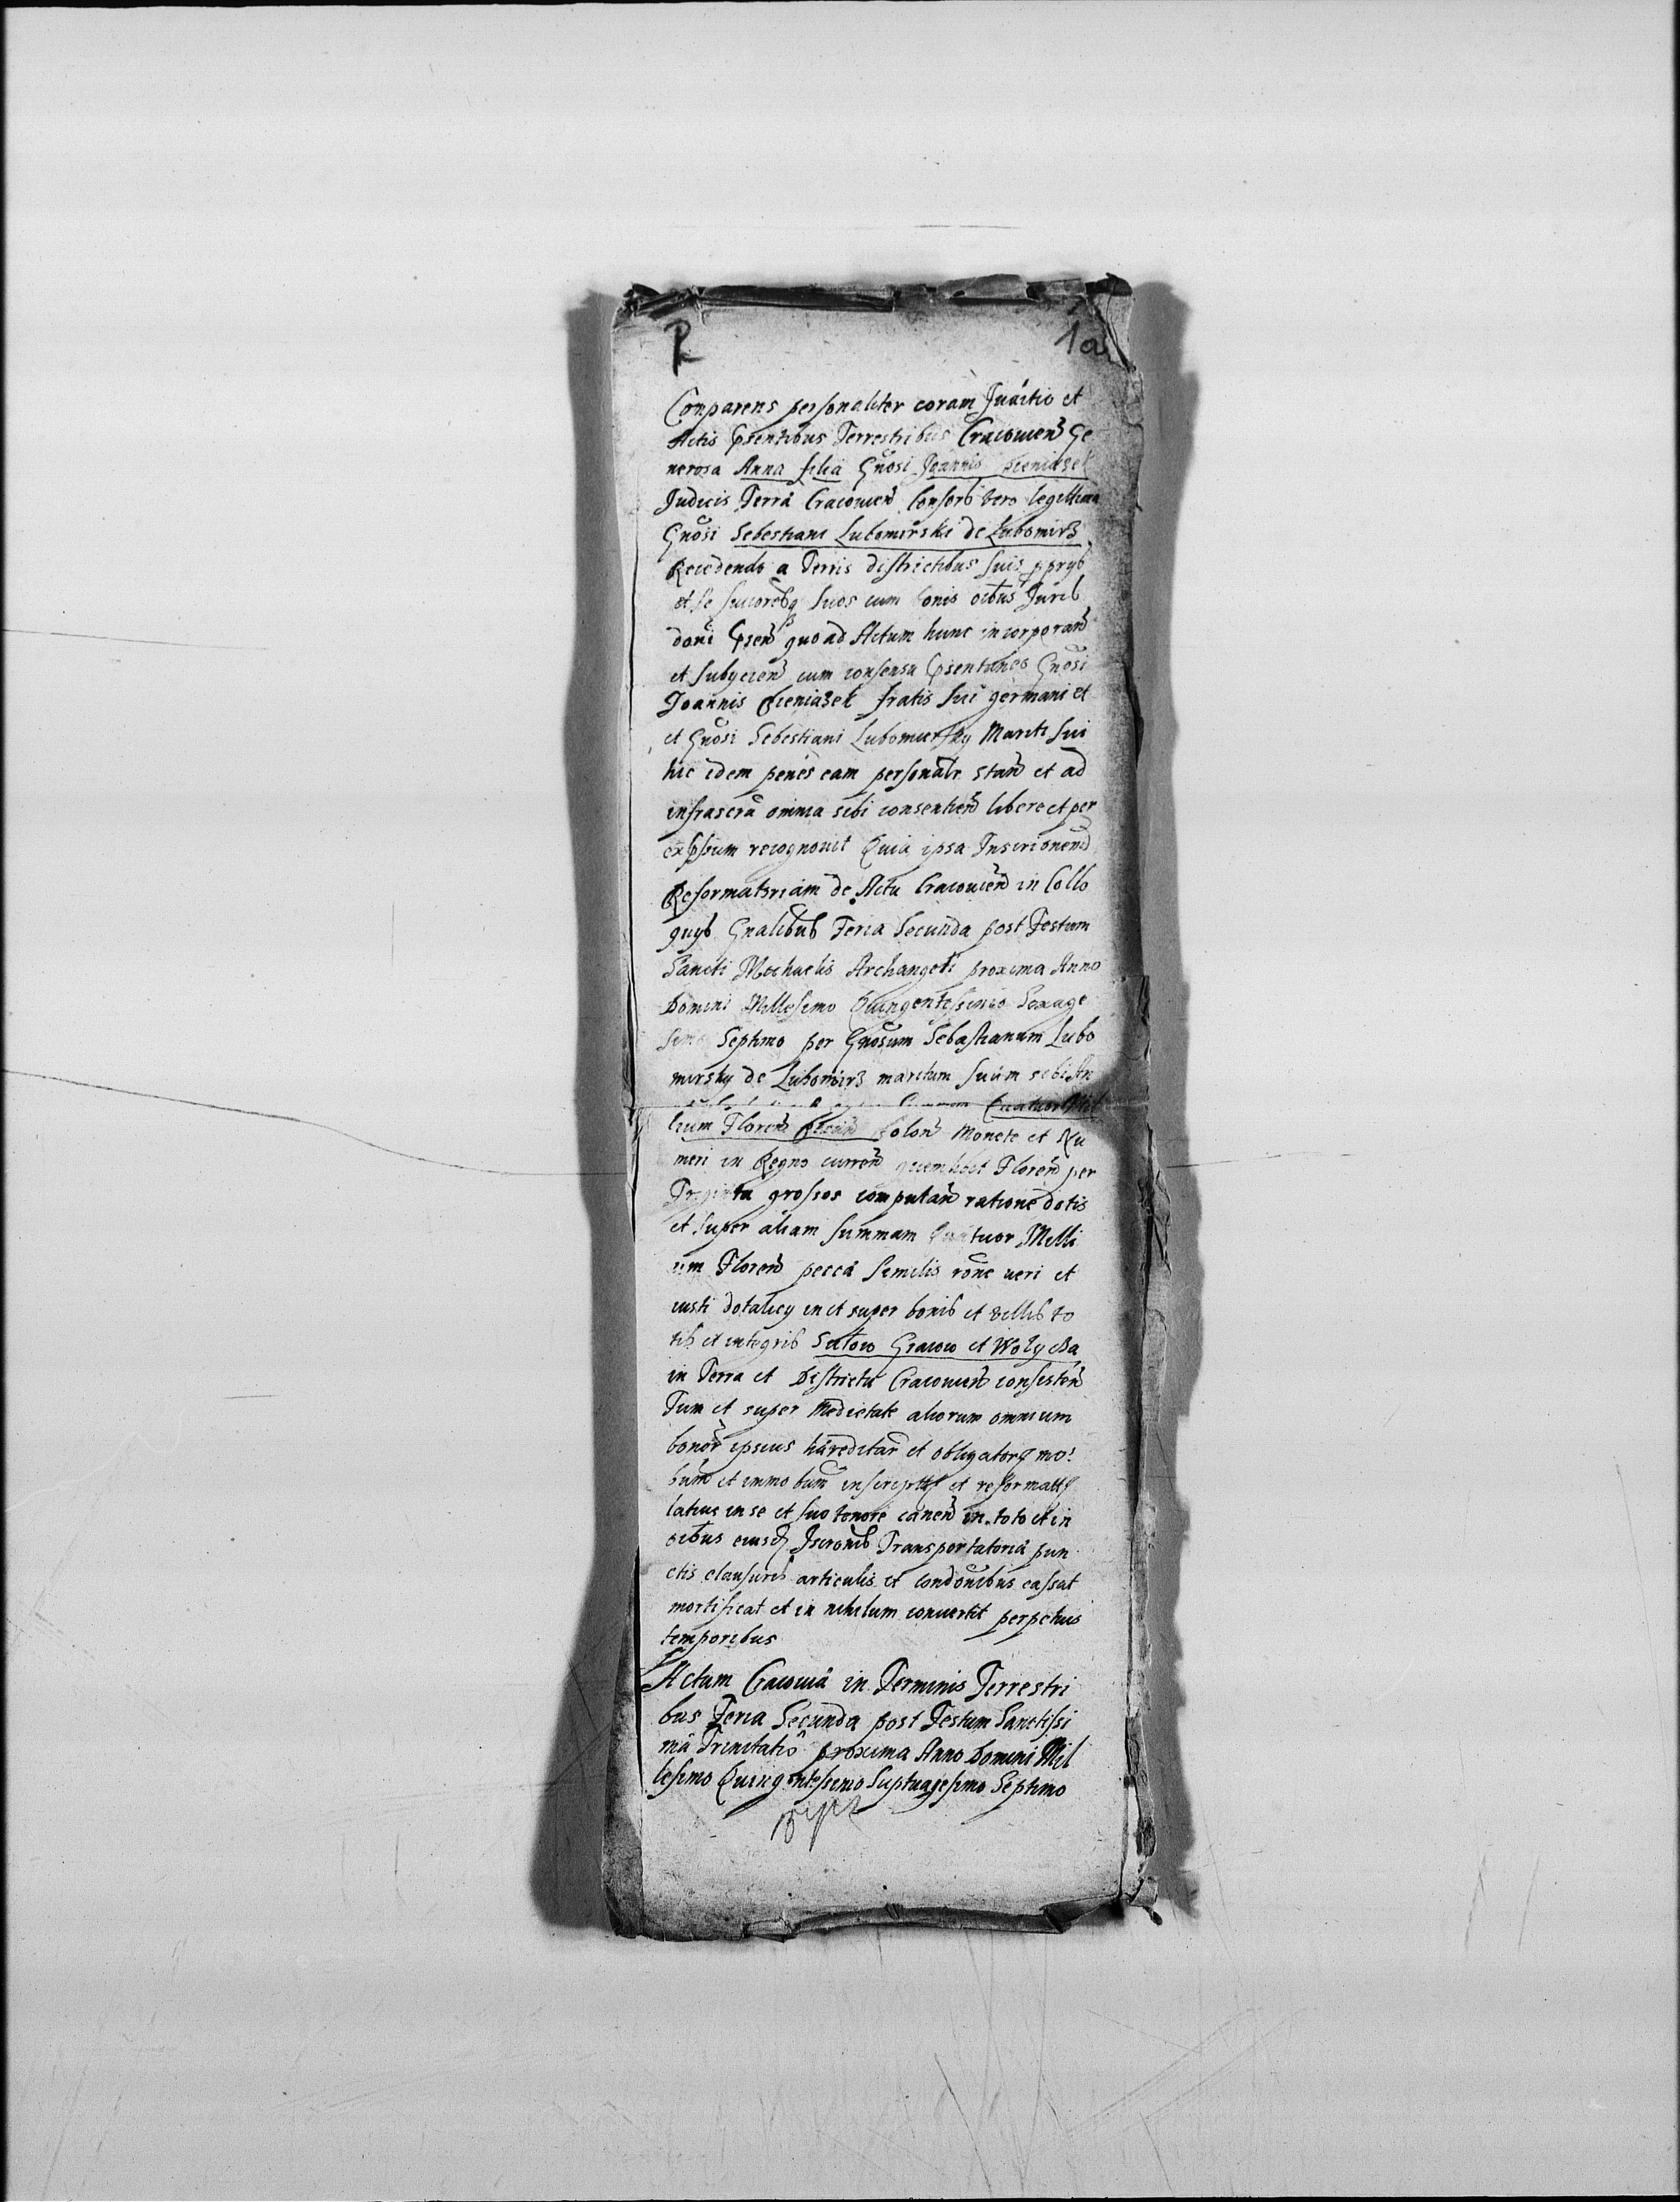 R
1a
Conparens personaliter coram Juditio et
Actis Pñsentibus Terrestribus Cracouien Ge
nerosa Anna filia Gñosi Joannis Pieniazek
Judicis Terræ Cracouien Consors vero legittima
Gñosi Sebestiani Lubomirski de Lubomirz
Recedendo a Terris districtibus suis ppryb
et se sucoresq suos cum bonis oibus Jurib
doni Psen quo ad Actum hunc incorporan
et subycien cum consensu Psentaneo Gnosi
Joannis Pieniazek fratis sui germani et
et Gnosi Sebestiani Lubomirsky Mariti sui
hic idem penes eam personalr stan et ad
infrascra omnia sibi consentien libere et per
expssum recognouit Quia ipsa Inscrionem
Reformatoriam de Actu Cracouien in Collo
quyb Gnalibus Feria Secunda post Festum
Sancti Michaelis Archangeli proxima Anno
Domini Millesimo Quingentesimo Sexage
simo Septimo per Gnosum Sebastianum Lubo
mirsky de Lubomirz maritum suum sibi
summam Quatuor Mil
lium Floren Polon Monete et Nu
meri in Regno curren quemlibet Floren per
Triginta grossos computan ratione dotis
et super aliam summam Quatuor Milli
um Floren pecca similis rone veri et
iusti dotalicy in et super bonis et villis to
tis et integris Sulow Gracow et Wolycza
in Terra et Districtu Cracouien consisten
Tum et super Medietate aliorum omnium
bonor ipsius hæreditar et obligatorq mo
bum et immobum inscriptq et reformatq
latius in se et suo tenore canen in toto et in
oibus eiusq Iscronis Transportatoria pun
ctis clausuris articulis et condonibus cassat
mortificat et in nihilum conuertit perpetuis
temporibus
Actum Cracouiæ in Terminis Terrestri
bus Feria Secunda post Festum Sanctissi
mæ Trinitatis proxima Anno Domini Mil
lesimo Quingentesimo Suptuagesimo Septimo